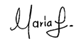 Maria L.